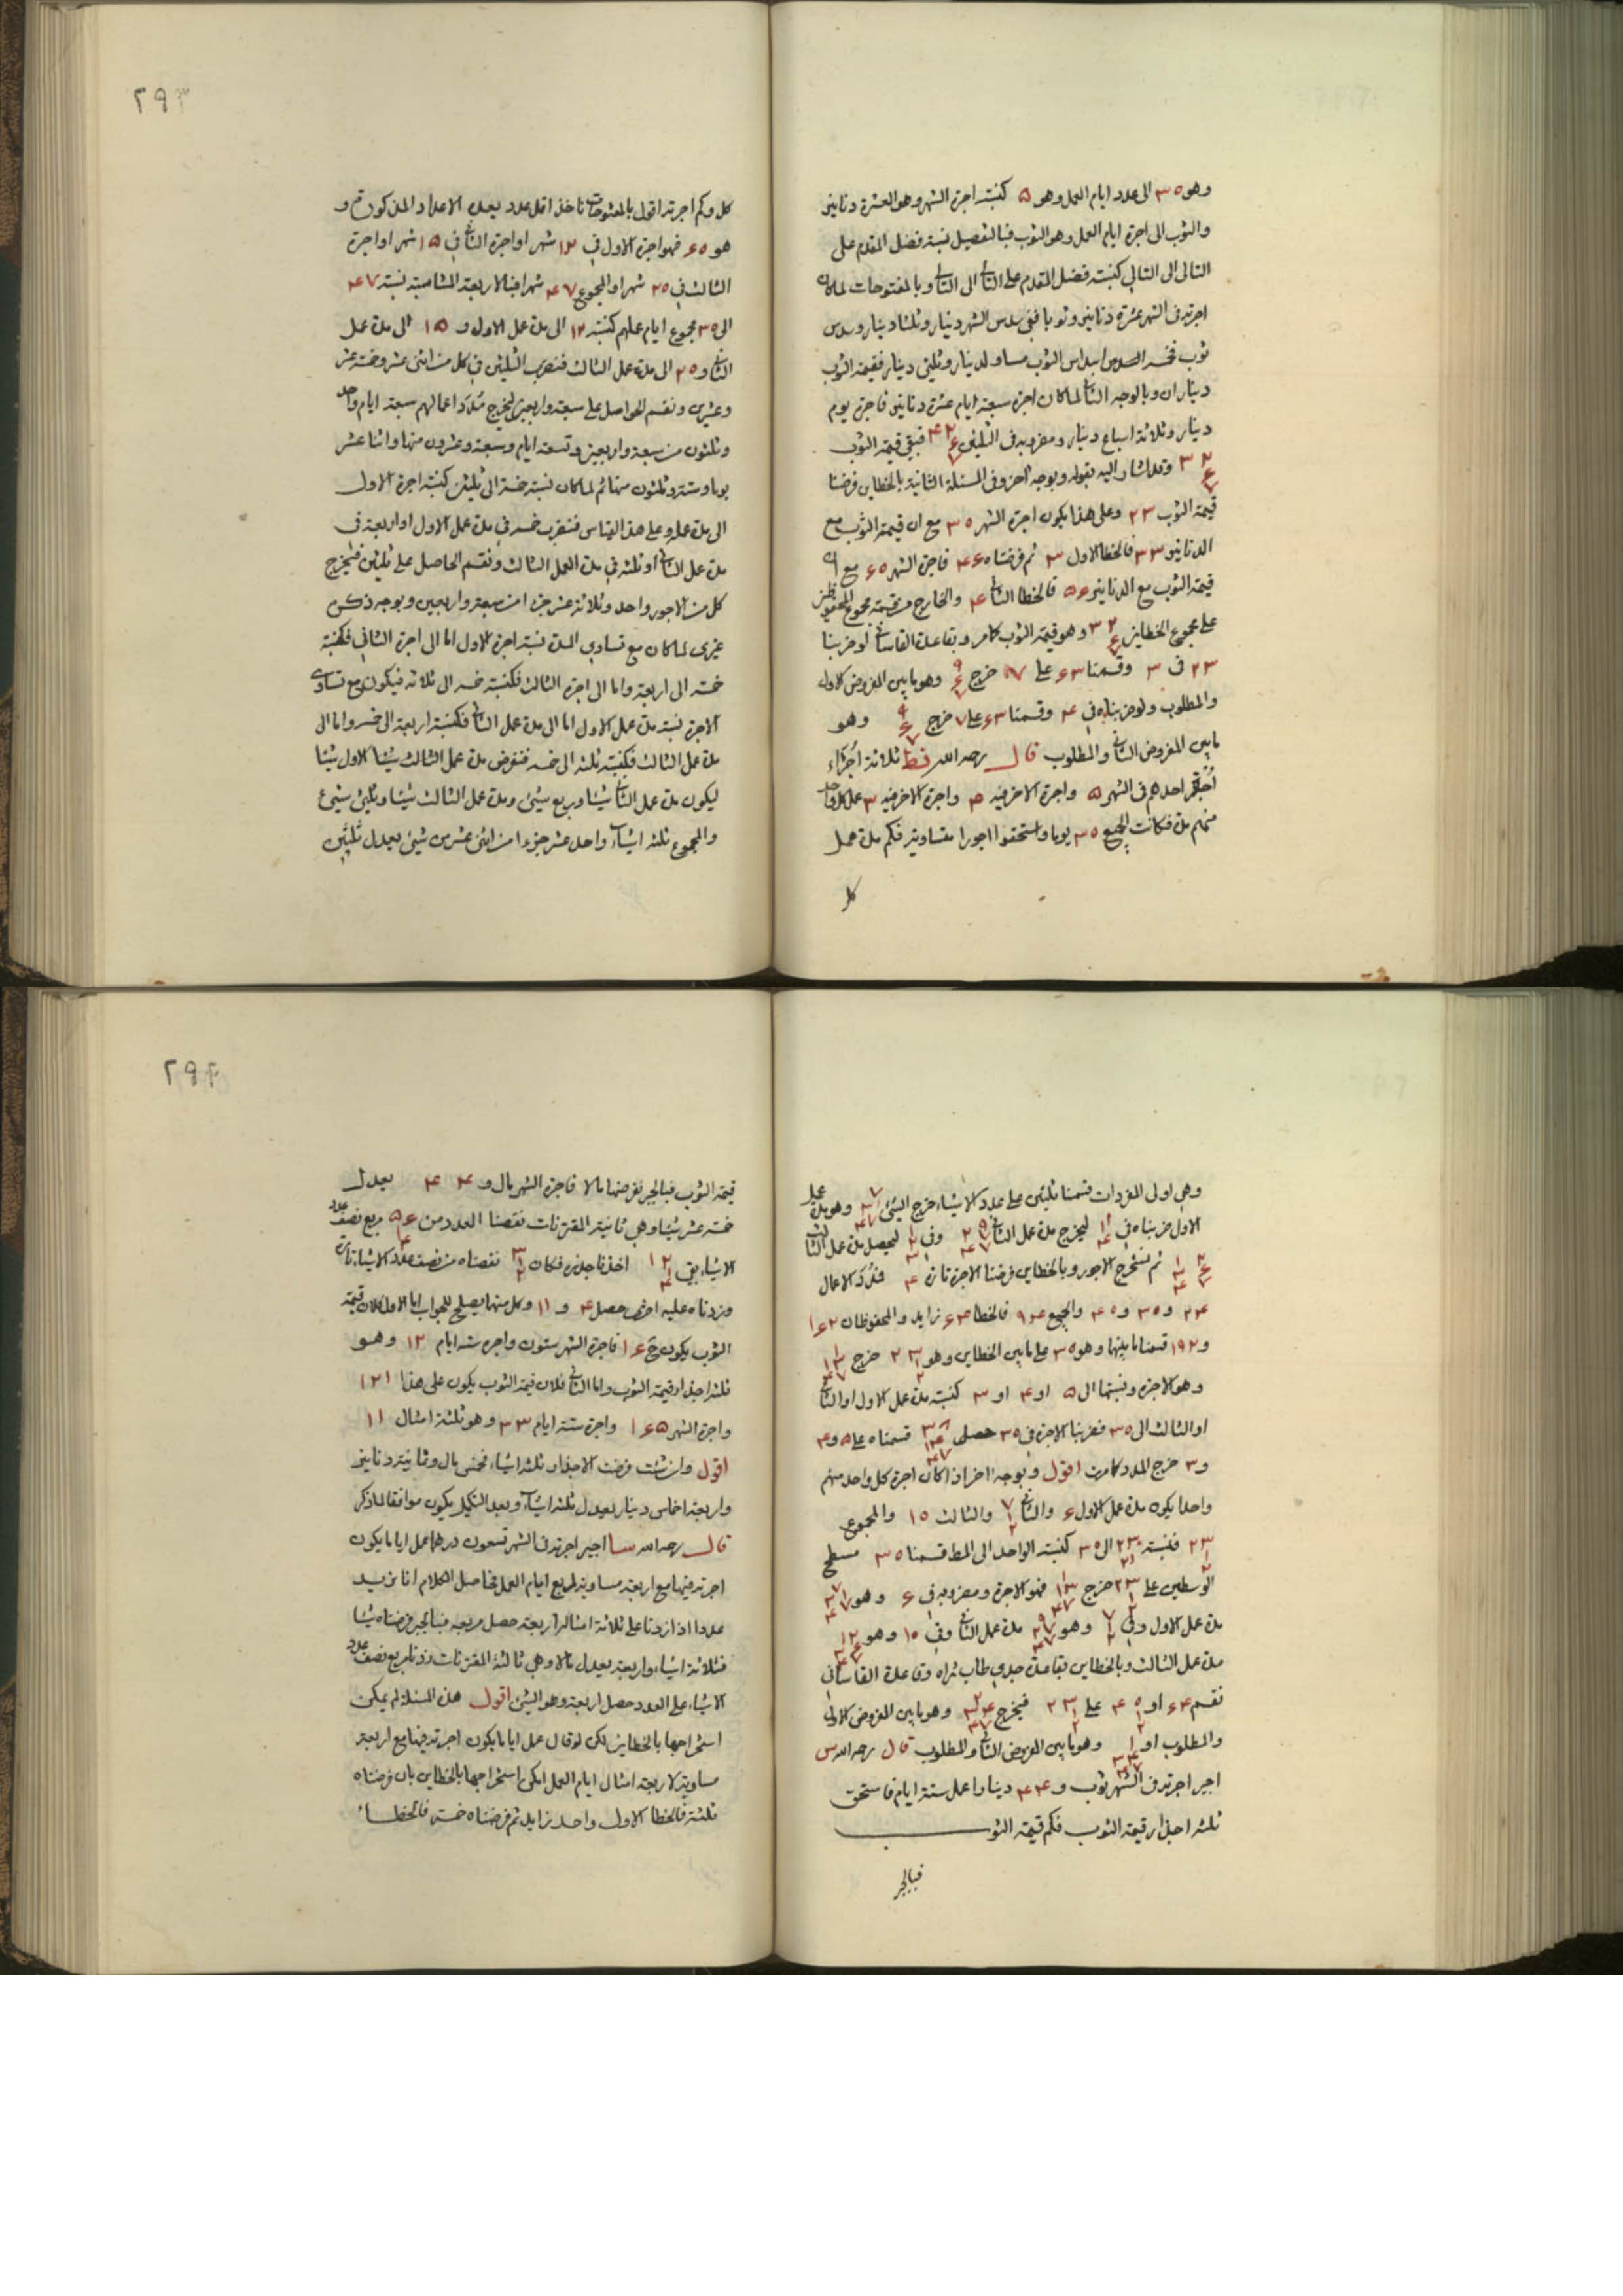 وهو ٣٥ الى عدد ايام العمل وهو ٥ كنسبة اجرة الشهر وهو العشرة دنانير
والثوب الى اجرة ايام العمل وهو الثوب فبالتفصيل نسبة فضل المقدم على
التالى الى التالي كنسبة فضل المقدم على الثانى الى الثانى وبالمفتوحات لما كان
اجرته فى الشهر عشرة دنانير وثوبا ففى سدس الشهر دينار وثلثا دينار وسدس
ثوب فخمسة اسداس الثوب مساو لدينار وثلثى دينار فقيمة الثوب
ديناران وبالوجه الثانى لما كان اجرة سبعة ايام عشرة دنانير فاجرة يوم
دينار وثلاثة اسباع دينار ومضروبه فى الثلثين فبقي قيمة الثوب
وقد اشار اليه بقوله وبوجه آخر وفى المسئلة الثانية بالخطاين فرضنا
قيمة الثوب ٢٣ وعلى هذا يكون اجرة الشهر ٣٥ مع ان قيمة الثوب مع
الدنانير ٣٣ فالخطا الاول ٢ ثم فرضناه ٤٦ فاجرة الشهر مع ان
قيمة الثوب مع الدنانير ٥٦ فالخطا الثانى والخارج من قسمة مجموع المحفوظين
على مجموع الخطاين وهو قيمة الثوب كما مر وبقاعدة القاسانى لو ضربنا
٢٣ فى ٣ وقسمنا على ٧ خرج وهو ما بين المفروض الاول
والمطلوب ولو ضربناه فى ٤ وقسمنا على ٧ خرج وهو
ما بين المفروض الثانى والمطلوب قال رحمه الله ثلاثة اجراء
اجرة احدهم فى الشهر ٥ واجرة الاخر فيه ٤ واجرة الاخر فيه ٣ عمل كل واحد
منهم مدة فكانت الجميع ٣٥ يوما واستحقوا اجورا متساوية فكم مدة عمل
كل
٢٩٣
كل وكم اجرته اقول بالمفتوحات ناخذ اقل عدد يعده الاعداد المذكورة و
هو ٦٥ فهو اجرة الاول فى ١٢ شهرا واجرة الثانى فى ١٥ شهرا واجرة
الثالث فى ٢٥ شهرا والمجموع ٤٧ شهرا فبالاربعة المتناسبة نسبة ٤٧
الى ٣٥ مجموع ايام عملهم كنسبة ١٢ الى مدة عمل الاول و ١٥ الى مدة عمل
الثانى و ٢٥ الى مدة عمل الثالث فنضرب الثلثين فى كل من اثنى عشر وخمسة عشر
وعشرين ونقسم الحواصل على سبعة واربعين ليخرج مدد اعمالهم سبعة ايام واحد
وثلثون من سبعة واربعين وتسعة ايام وسبعة وعشرون منها واثنا عشر
يوما وستة وثلثون منها ثم لما كان نسبة خمسة الى ثلثين كنسبة اجرة الاول
الى مدة عمله وعلى هذا القياس فنضرب خمسة فى مدة عمل الاول او اربعة فى
مدة عمل الثانى او ثلثة فى مدة العمل الثالث ونقسم الحاصل على ثلثين فيخرج
كل من الاجور واحد وثلاثة عشر جزءا من سبعة واربعين وبوجه ذكره
غيرى لما كان مع تساوى المدة نسبة اجرة الاول اما الى اجرة الثانى فكنسبة
خمسة الى اربعة واما الى اجرة الثالث فكنسبة خمسة الى ثلاثة فيكون مع تساوى
الاجرة نسبة مدة عمل الاول اما الى مدة عمل الثانى فكنسبة اربعة الى خمسة واما الى
مدة عمل الثالث فكنسبة ثلثة الى خمسة فنفرض مدة عمل الاول شيئا
ليكون مدة عمل الثانى شيئا وربع شيئ ومدة عمل الثالث شيئا وثلثى شيئ
والمجموع ثلثة اشياء واحد عشر جزءا من اثنى عشر من شيئ يعدل ثلثين
وهى اولى المفردات قسمنا ثلثين على عدد الاشياء خرج الشيئ وهو مدة عمل
الاول ضربناه فى ليخرج مدة عمل الثانى وفى ليحصل مدة عمل الثالث
ثم نستخرج الاجور وبالخطاين فرضنا الاجرة تارة ٤ فمدد الاعمال
٢٤ و ٣٥ و ٤٥ والجميع ٩٤ فالخطا زايد والمحفوظان
و ١٩٢ قسمنا ما بينهما وهو ٣٥ على ما بين الخطاين وهو خرج
وهو الاجرة ونسبتها الى ٥ او ٤ او ٣ كنسبة مدة عمل الاول او الثانى
او الثالث الى ٣٥ فضربنا الاجرة فى ٣٥ حصل قسمناه على ٥ و ٤
و ٣ خرج المدد كما مرت اقول وبوجه اخر اذا كان اجرة كل واحد منهم
واحدا يكون مدة عمل الاول ٦ والثانى والثالث ١٥ والمجموع
فنسبة الى ٣٥ كنسبة الواحد الى المط قسمنا ٣٥ مسطح
الوسطين على خرج فهو الاجرة ومضروبه فى ٦ وهو
مدة عمل الاول وفى وهو مدة عمل الثانى وفى ١٥ وهو
مدة عمل الثالث وبالخطاين بقاعدة جدى طاب ثراه وقاعدة القاسانى
نقسم او على فيخرج وهو ما بين المفروض الاول
والمطلوب او وهو ما بين المفروض الثانى والمطلوب قال رحمه الله
اجير اجرته فى الشهر ثوب و ٤٤ دينارا عمل ستة ايام فاستحق
ثلثة اجذار قيمة الثوب فكم قيمة الثوب
فبالجبر
٢٩٤
قيمة الثوب فبالجبر نفرضها مالا فاجرة الشهر مال و ٤٤ يعدل
خمسة عشر شيئا وهى ثانية المقترنات نقصنا العدد من ٥٦ مربع نصف عدد
الاشياء بقى اخذنا جذره فكان نقصناه من نصف عدد الاشياء تارة
وزدناه عليه اخرى حصل ٤ و ١١ وكل منهما يصلح للجواب اما الاول فلان قيمة
الثوب يكون ح ١٦ فاجرة الشهر ستون واجرة ستة ايام ١٢ وهو
ثلثة اجذار قيمة الثوب واما الثانى فلان قيمة الثوب يكون على هذا ١٢١
واجرة الشهر ١٦٥ واجرة ستة ايام ٣٣ وهو ثلثة امثال ١١
اقول وان شئت فرضت الاجذار ثلثة اشياء فخمس مال وثمانية دنانير
واربعة اخماس دينار يعدل ثلثة اشياء وبعد التكميل يكون موافقا لما ذكر
قال رحمه الله اجير اجرته فى الشهر تسعون درهما عمل اياما يكون
اجرته فيها مع اربعة مساوية لمربع ايام العمل فحاصل الكلام انا نريد
عددا اذا زدنا على ثلاثة امثاله اربعة حصل مربعه فبالجبر فرضناه شيئا
فثلاثة اشياء واربعة يعدل مالا وهى ثالثة المقترنات زدنا مربع نصف عدد
الاشياء على العدد حصل اربعة وهو الشيئ اقول هذه المسئلة لم يمكن
استخراجها بالخطاين لكن لو قال عمل اياما يكون اجرته فيها مع اربعة
مساوية لاربعة امثال ايام العمل امكن استخراجها بالخطاين بان فرضناه
ثلثة فالخطا الاول واحد زايد ثم فرضناه خمسة فالخطا